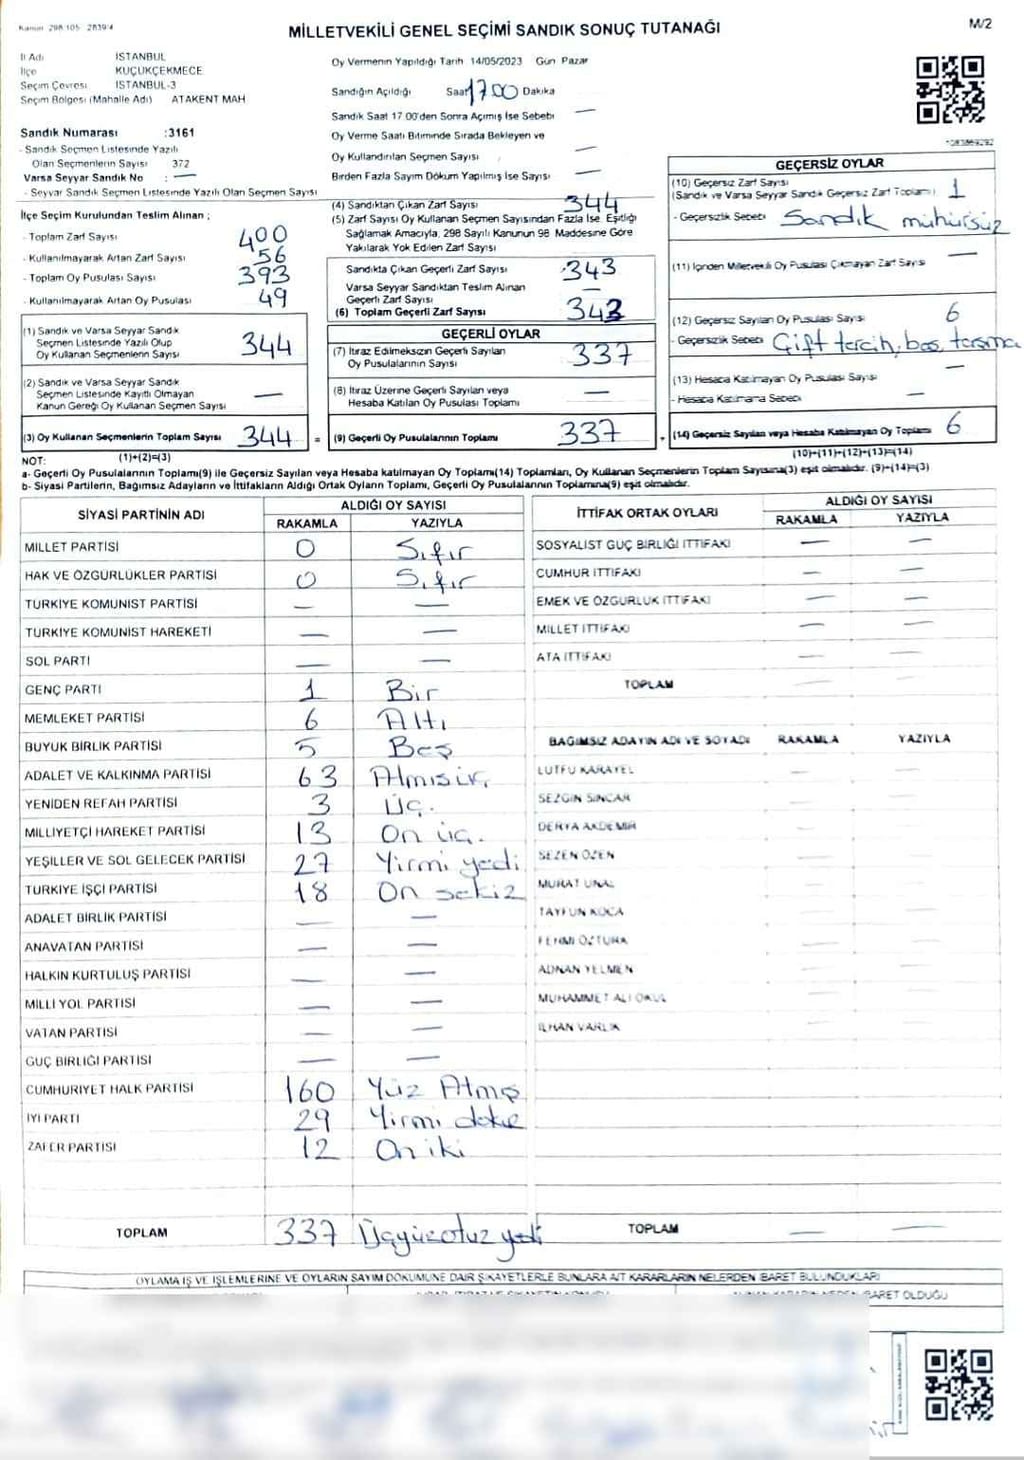 Kanun 298/105 2839/4
MİLLETVEKİLİ GENEL SEÇİMİ SANDIK SONUÇ TUTANAĞI
M/2
İl Adı İSTANBUL
İlçe KÜÇÜKÇEKMECE
Seçim Çevresi İSTANBUL-3
Seçim Bölgesi (Mahalle Adı) ATAKENT MAH
Sandık Numarası :3161
- Sandık Seçmen Listesinde Yazılı
Olan Seçmenlerin Sayısı 372
Varsa Seyyar Sandık No : —
- Seyyar Sandık Seçmen Listesinde Yazılı Olan Seçmen Sayısı
İlçe Seçim Kurulundan Teslim Alınan ;
- Toplam Zarf Sayısı 400
- Kullanılmayarak Artan Zarf Sayısı 56
- Toplam Oy Pusulası Sayısı 393
- Kullanılmayarak Artan Oy Pusulası 49
(1) Sandık ve Varsa Seyyar Sandık
Seçmen Listesinde Yazılı Olup
Oy Kullanan Seçmenlerin Sayısı 344
(2) Sandık ve Varsa Seyyar Sandık
Seçmen Listesinde Kayıtlı Olmayan
Kanun Gereği Oy Kullanan Seçmen Sayısı —
(3) Oy Kullanan Seçmenlerin Toplam Sayısı 344 =
Oy Vermenin Yapıldığı Tarih 14/05/2023 Gün Pazar
Sandığın Açıldığı Saat 17 00 Dakika
Sandık Saat 17 00'den Sonra Açımış İse Sebebi —
Oy Verme Saati Bitiminde Sırada Bekleyen ve
Oy Kullandırılan Seçmen Sayısı —
Birden Fazla Sayım Döküm Yapılmış İse Sayısı —
(4) Sandıktan Çıkan Zarf Sayısı 344
(5) Zarf Sayısı Oy Kullanan Seçmen Sayısından Fazla İse Eşitliği
Sağlamak Amacıyla, 298 Sayılı Kanunun 98 Maddesine Göre
Yakılarak Yok Edilen Zarf Sayısı
Sandıkta Çıkan Geçerli Zarf Sayısı 343
Varsa Seyyar Sandıktan Teslim Alınan
Geçerli Zarf Sayısı —
(6) Toplam Geçerli Zarf Sayısı 343
GEÇERLİ OYLAR
(7) İtiraz Edilmeksizin Geçerli Sayılan
Oy Pusulası Sayısı 337
(8) İtiraz Üzerine Geçerli Sayılan veya
Hesaba Katılan Oy Pusulası Toplamı —
(9) Geçerli Oy Pusulalarının Toplamı 337 +
1083869292
GEÇERSİZ OYLAR
(10) Geçersiz Zarf Sayısı
(Sandık ve Varsa Seyyar Sandık Geçersiz Zarf Toplamı) 1
- Geçersizlik Sebebi Sandık mühürsüz
(11) İçinden Milletvekili Oy Pusulası Çıkmayan Zarf Sayısı —
(12) Geçersiz Sayılan Oy Pusulası Sayısı 6
- Geçersizlik Sebebi Çift tercih, boş, taşma
(13) Hesaba Katılmayan Oy Pusulası Sayısı —
- Hesaba Katılmama Sebebi —
(14) Geçersiz Sayılan veya Hesaba Katılmayan Oy Toplamı 6
NOT: (1)+(2)=(3) (10)+(11)+(12)+(13)=(14)
a- Geçerli Oy Pusulalarının Toplamı(9) ile Geçersiz Sayılan veya Hesaba katılmayan Oy Toplamı(14) Toplamları, Oy Kullanan Seçmenlerin Toplam Sayısına(3) eşit olmalıdır. (9)+(14)=(3)
b- Siyasi Partilerin, Bağımsız Adayların ve İttifakların Aldığı Ortak Oyların Toplamı, Geçerli Oy Pusulalarının Toplamına(9) eşit olmalıdır.
SİYASİ PARTİNİN ADI ALDIĞI OY SAYISI
RAKAMLA YAZIYLA
MİLLET PARTİSİ 0 Sıfır
HAK VE ÖZGÜRLÜKLER PARTİSİ 0 Sıfır
TÜRKİYE KOMÜNİST PARTİSİ — —
TÜRKİYE KOMÜNİST HAREKETİ — —
SOL PARTİ — —
GENÇ PARTİ 1 Bir
MEMLEKET PARTİSİ 6 Altı
BÜYÜK BİRLİK PARTİSİ 5 Beş
ADALET VE KALKINMA PARTİSİ 63 Atmışüç
YENİDEN REFAH PARTİSİ 3 Üç.
MİLLİYETÇİ HAREKET PARTİSİ 13 On üç.
YEŞİLLER VE SOL GELECEK PARTİSİ 27 Yirmi yedi
TÜRKİYE İŞÇİ PARTİSİ 18 On sekiz
ADALET BİRLİK PARTİSİ — —
ANAVATAN PARTİSİ — —
HALKIN KURTULUŞ PARTİSİ — —
MİLLİ YOL PARTİSİ — —
VATAN PARTİSİ — —
GÜÇ BİRLİĞİ PARTİSİ — —
CUMHURİYET HALK PARTİSİ 160 Yüz Atmış
İYİ PARTİ 29 Yirmi dokuz
ZAFER PARTİSİ 12 On iki
TOPLAM 337 Üçyüzotuz yedi
İTTİFAK ORTAK OYLARI ALDIĞI OY SAYISI
RAKAMLA YAZIYLA
SOSYALİST GÜÇ BİRLİĞİ İTTİFAKI — —
CUMHUR İTTİFAKI — —
EMEK VE ÖZGÜRLÜK İTTİFAKI — —
MİLLET İTTİFAKI — —
ATA İTTİFAKI — —
TOPLAM — —
BAĞIMSIZ ADAYIN ADI VE SOYADI RAKAMLA YAZIYLA
LÜTFÜ KARAYEL — —
SEZGİN SİNCAR — —
DERYA AKDEMİR — —
SEZEN ÖZEN — —
MURAT ÜNAL — —
TAYFUN KOCA — —
FEHMİ ÖZTÜRK — —
ADNAN YELMEN — —
MUHAMMET ALİ OKUL — —
İLHAN VARLIK — —
TOPLAM — —
OYLAMA İŞ VE İŞLEMLERİNE VE OYLARIN SAYIM DÖKÜMÜNE DAİR ŞİKAYETLERLE BUNLARA AİT KARARLARIN NELERDEN İBARET BULUNDUKLARI
İBARET OLDUĞU